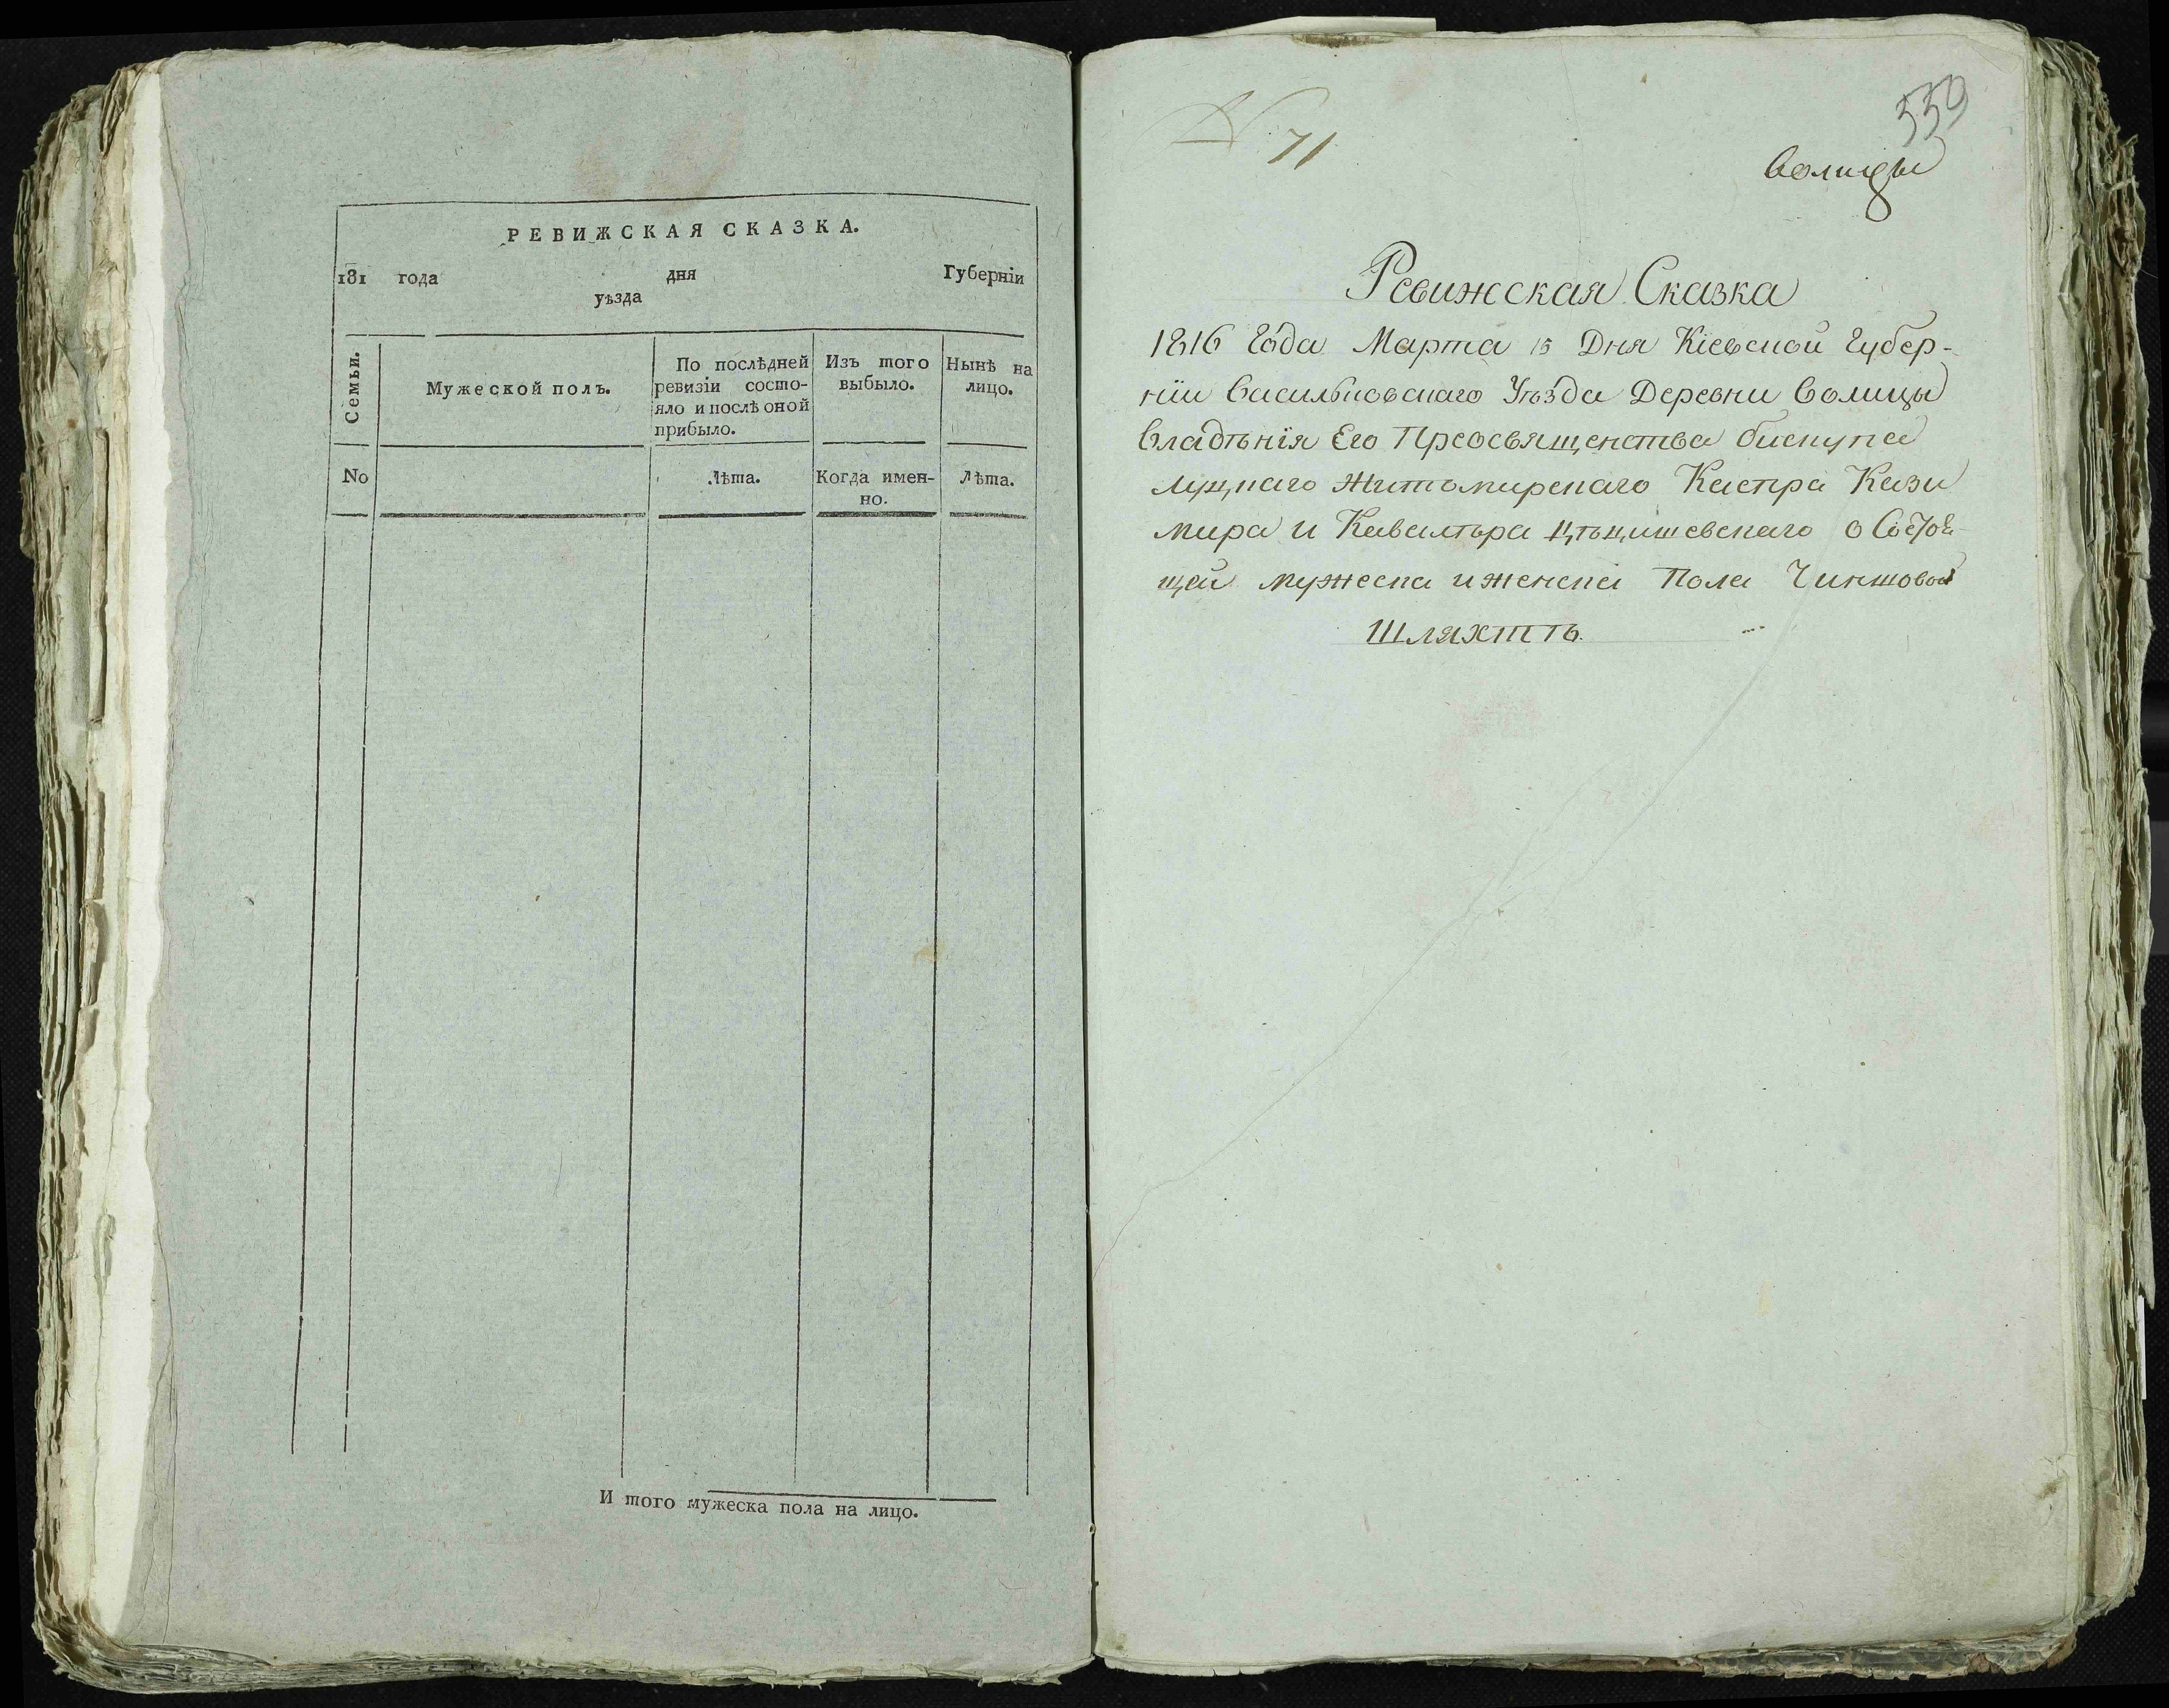 РЕВИЖСКАЯ СКАЗКА.
181 года дня Губерніи
уѣзда
Семьи.
Мужеской полъ.
По послѣдней
ревизіи состо-
яло и послѣ оной
прибыло.
Изъ того
выбыло.
Нынѣ на
лицо.
No
Лѣта.
Когда имен-
но.
Лѣта.
И того мужеска пола на лицо.
559
N 71
Волицы
Ревижская Сказка
1816 Года Марта 15 Дня Кіевской Губер-
ніи Васильковскаго Уѣзда Деревни Волицы
Владѣнія Его Преосвященства бискупа
Луцкаго Житомирскаго Каспра Кази
мира и Кавалѣра Цѣцишевскаго о Состоя-
щей мужеска и женска Пола Чиншовой
Шляхтѣ